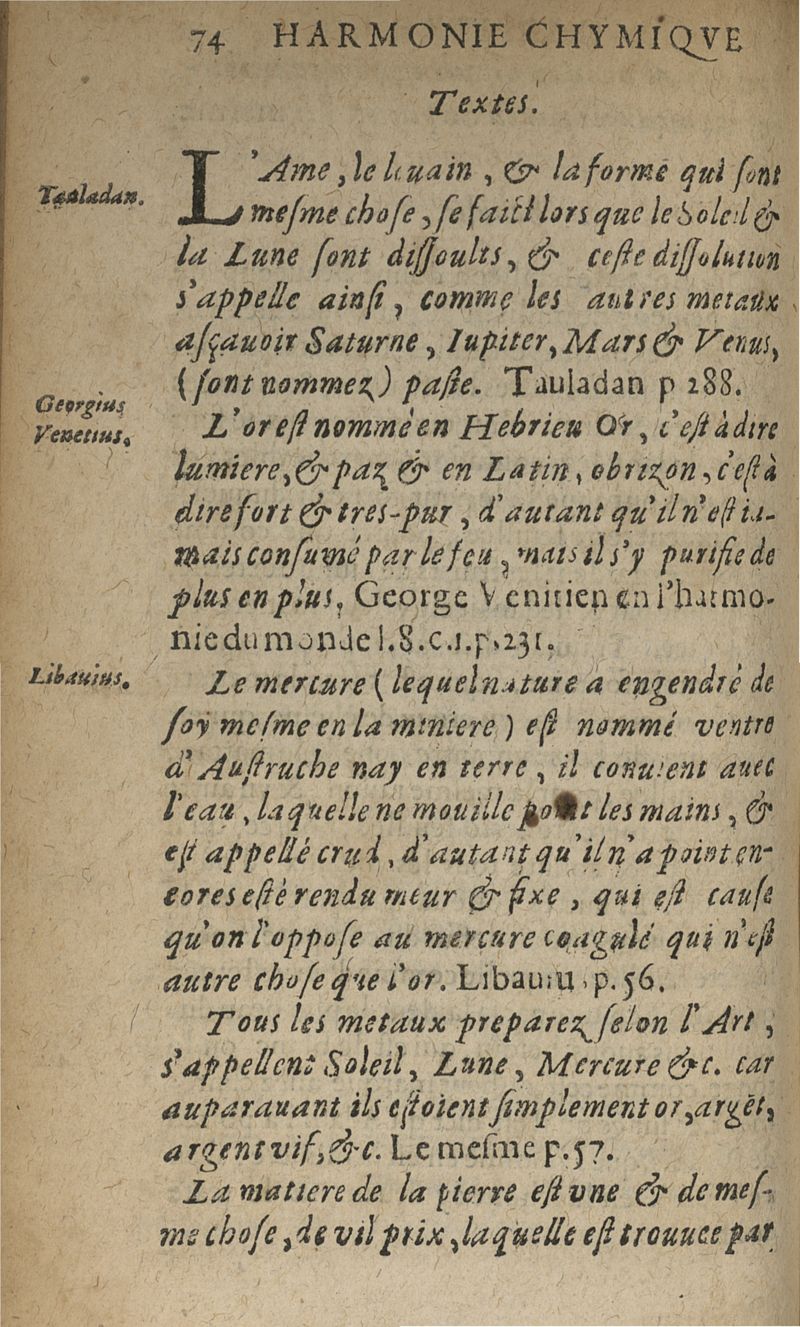 74 HARMONIE CHYMIQVE
Textes.
Tauladan.
L'Ame, le leuain, & la forme qui sont
mesme chose, se faict lors que le Soleil &
la Lune sont dissoults, & ceste dissolution
s'appelle ainsi, comme les autres metaux
asçauoir Saturne, Iupiter, Mars & Venus,
(sont nommez) paste. Tauladan p 288.
Georgius
Venetius.
L'or est nommé en Hebrieu Or, c'est à dire
lumiere, & paz & en Latin, obrizon, c'est à
dire fort & tres-pur, d'autant qu'il n'est ia-
mais consumé par le feu, mais il s'y purifie de
plus en plus, George Venitien en l'harmo-
nie du monde l.8.c.1.p.231.
Libauius.
Le mercure (lequel nature a engendré de
soy mesme en la miniere) est nommé ventre
d'Austruche nay en terre, il conuient auec
l'eau, laquelle ne mouille point les mains, &
est appellé crud, d'autant qu'il n'a point en-
cores esté rendu meur & fixe, qui est cause
qu'on l'oppose au mercure coagulé qui n'est
autre chose que l'or. Libauiu, p.56.
Tous les metaux preparez selon l'Art,
s'appellent Soleil, Lune, Mercure &c. car
auparauant ils estoient simplement or, argēt,
argent vif, &c. Le mesme p.57.
La matiere de la pierre est vne & de mes-
me chose, de vil prix, laquelle est trouuee par